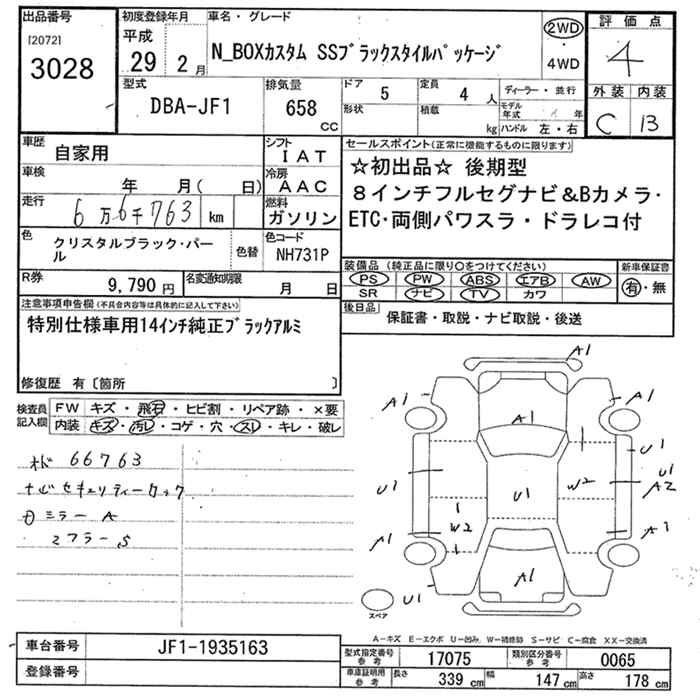 出品番号
[2072]
3028
初度登録年月
平成
29年 2月
車名・グレード
N_BOXカスタム SSブラックスタイルパッケージ
2WD
・
4WD
評価点
4
外装 内装
C B
型式
DBA-JF1
排気量
658
CC
ドア 5
形状
定員 4 人
積載 kg
ディーラー・並行
モデル年式 年
ハンドル 左・右
車歴
自家用
シフト
IAT
車検
年 月( 日)
冷房
AAC
走行
6万6千763 km
燃料
ガソリン
色
クリスタルブラック・パール
色替
色コード
NH731P
R券
9,790円
名変通知期限
月 日
セールスポイント(正常に機能するものに限ります)
☆初出品☆ 後期型
8インチフルセグナビ&Bカメラ・
ETC・両側パワスラ・ドラレコ付
装備品(純正品に限り○をつけてください)
PS PW ABS エアB AW
SR ナビ TV カワ
新車保証書
有・無
後日品
保証書・取説・ナビ取説・後送
注意事項申告欄(不具合内容等は具体的に記入して下さい)
特別仕様車用14インチ純正ブラックアルミ
修復歴 有〔箇所 〕
検査員記入欄
FW キズ・飛石・ヒビ割・リペア跡・×要
内装 キズ・汚レ・コゲ・穴・スレ・キレ・破レ
オド 66763
ナビセキュリティーロック
ミラー A
マフラー S
A1
A1
A1
A1
U1
U1
U1
A2
U1
W2
W2
A1
A1
A1
U1
スペア
A-キズ E-エクボ U-凹み W-補修跡 S-サビ C-腐食 XX-交換済
車台番号
JF1-1935163
登録番号
型式指定番号 参考
17075
類別区分番号 参考
0065
車庫証明用 参考
長さ 339 cm
幅 147 cm
高さ 178 cm